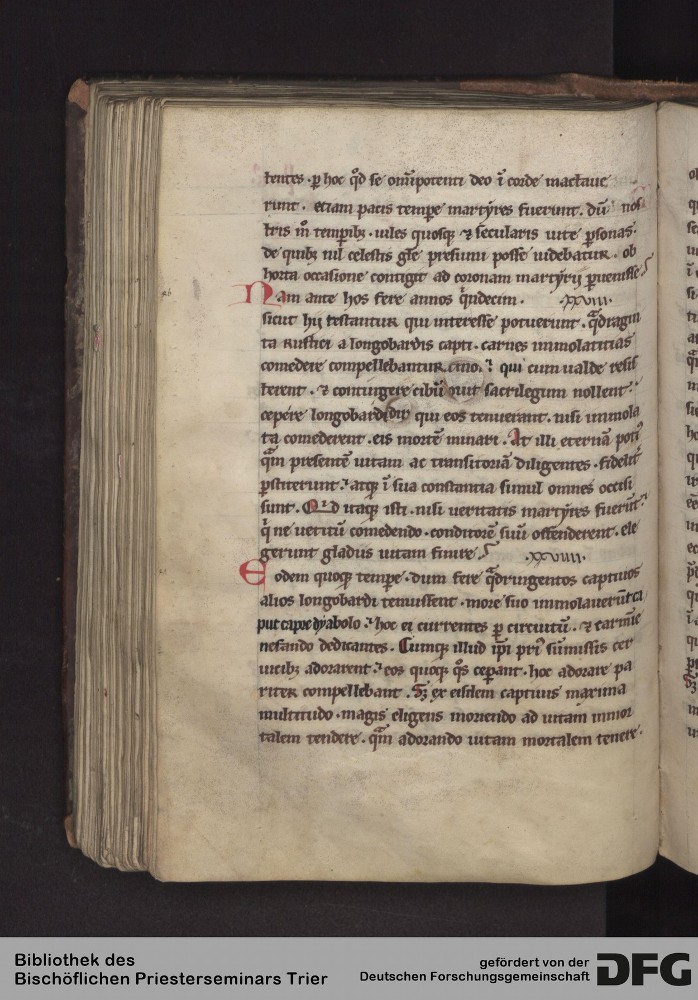 tentes · ꝑ hoc q̇d se om̄ipotenti deo ī corde mactaue
runt · etiam pacis tempe martẏres fuerunt . dū nos
tris m̄ temꝑibꝫ · uiles quosqꝫ ⁊ secularis uite ꝑsonas ·
de quibꝫ nil celestis gl̄e presumi posse uidebatur · ob
horta occasione contigit ad coronam martẏrij ꝑuenisse
Nam ante hos fere annos q̇ndecim . xxviii .
sicut hij testantur qui interesse potuerunt . qͣdragin
ta rustici a longobardis capti . carnes immolaticias
comedere compellebantur qui cum ualde resis
terent . ⁊ contingere cibū sacrilegum nollent ·
cepere longobardi qui eos tenuerant . nisi immola
ta comederent . eis mortē minari . At illi eternā poti᷒
qͣm presentē uitam ac transitoriā diligentes . fidelit᷑
ꝑstiterunt ⁊ atqꝫ ī sua constantia simul omnes occisi
sunt . Quid itaqꝫ isti . nisi ueritatis martẏres fuerūt
q̇ ne uetitū comedendo . conditorē suū offenderent . ele
gerunt gladiis uitam finire . xxviiii .
Eodem quoqꝫ tempe . dum fere qͣdringentos captiuos
alios longobardi tenuissent . more suo immolauerūt ca
put capre dyabolo . hoc ei currentes ꝑ circuitū . ⁊ carmīe
nefando dedicantes . Cumqꝫ illud ip̄i pri᷒ sūmissis cer
uicibꝫ adorarent eos quoqꝫ q̊s ceꝑant . hoc adorare pa
riter compellebant . Sꝫ ex eisdem captiuis maxima
multitudo . magis eligens moriendo ad uitam inmor
talem tendere . qͣm adorando uitam mortalem tenere .
Bibliothek des
Bischöflichen Priesterseminars Trier
gefördert von der
Deutschen Forschungsgemeinschaft
DFG